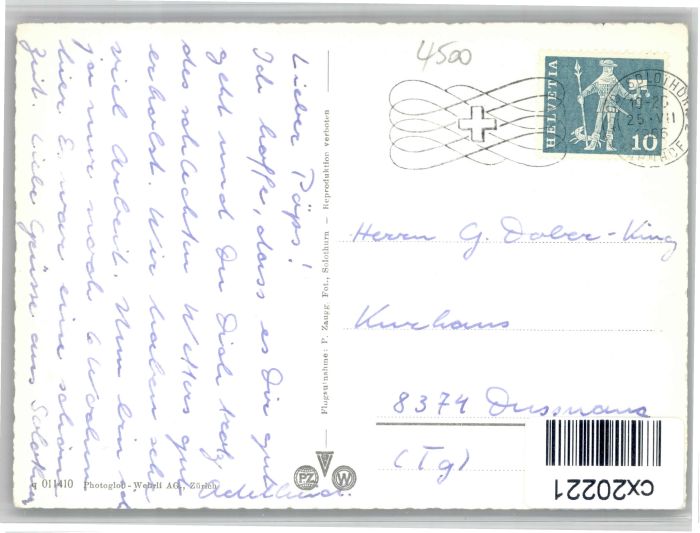 4500
HELVETIA
10
SOLOTHURN
25.VII
Lieber Päps!
Ich hoffe, dass es Dir gut
geht und Du Dich trotz
des schlechten Wetters gut
erholst. Wir haben sehr
viel Arbeit. Nun bin ich
ja nur noch 6 Wochen
hier. Es war eine schöne
Zeit. Liebe Grüsse aus Soloth.
Flugaufnahme: P. Zaugg, Fot., Solothurn — Reproduktion verboten
Herrn G. Dober-King
Kurhaus
8374 Dussnang
(Tg)
q 011410 Photoglob-Wehrli AG., Zürich
PZ W
cx20221